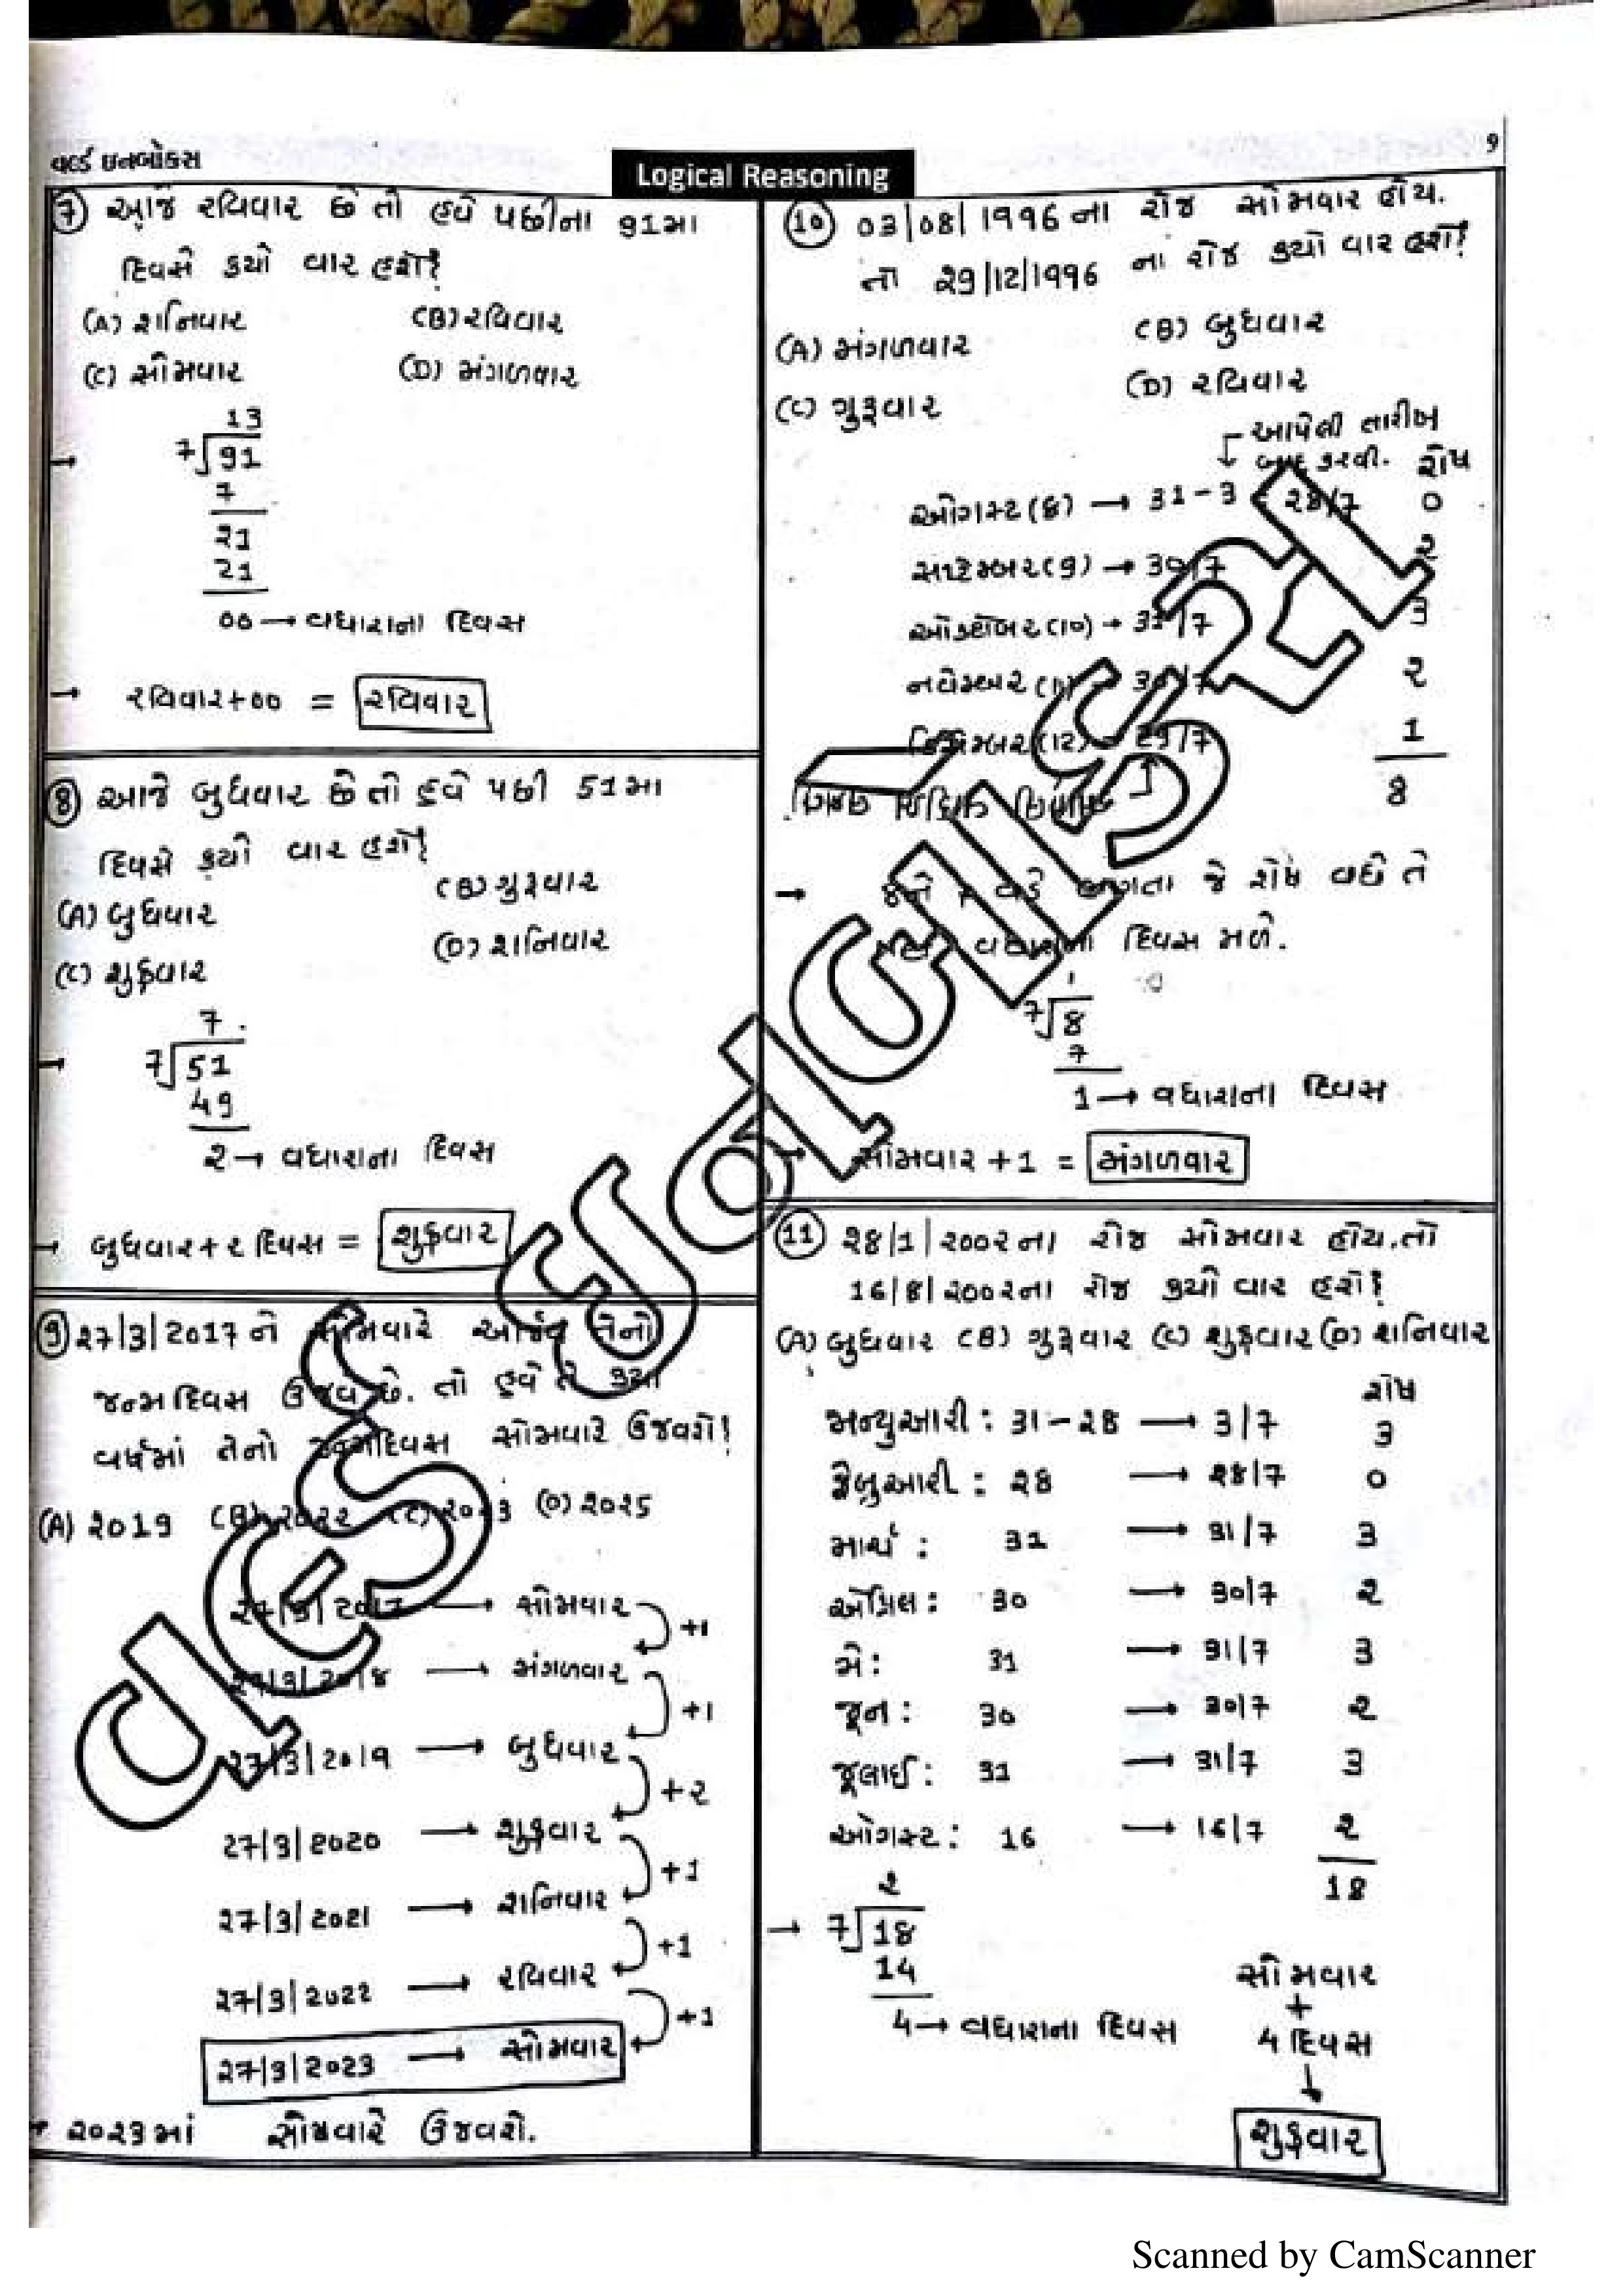 વર્લ્ડ ઇનબોક્સ
Logical Reasoning
9
(7) આજે રવિવાર છે તો હવે પછીના 91મા
દિવસે કયો વાર હશે?
(A) શનિવાર (B) રવિવાર
(C) સોમવાર (D) મંગળવાર
13
→ 7√91
7
21
21
00 → વધારાના દિવસ
→ રવિવાર+00 = રવિવાર
(8) આજે બુધવાર છે તો હવે પછી 51મા
દિવસે કયો વાર હશે?
(A) બુધવાર (B) ગુરૂવાર
(C) શુક્રવાર (D) શનિવાર
7
→ 7√51
49
2 → વધારાના દિવસ
→ બુધવાર+૨ દિવસ = શુક્રવાર
(9) 27/3/2017 ને સોમવારે તેનો
જન્મ દિવસ છે. તો હવે તે
વર્ષમાં તેનો જન્મદિવસ સોમવારે ઉજવશે?
(A) 2019 (B) 2022 (C) 2023 (D) 2025
27/3/2017 → સોમવાર
+1
27/3/2018 → મંગળવાર
+1
27/3/2019 → બુધવાર
+2
27/3/2020 → શુક્રવાર
+1
27/3/2021 → શનિવાર
+1
27/3/2022 → રવિવાર
+1
27/3/2023 → સોમવાર
→ 2023માં સોમવારે ઉજવશે.
(10) 03/08/1996 ના રોજ સોમવાર હોય.
તો 29/12/1996 ના રોજ કયો વાર હશે?
(A) મંગળવાર (B) બુધવાર
(C) ગુરૂવાર (D) રવિવાર
આપેલી તારીખ
બાદ કરવી. શેષ
ઓગસ્ટ(8) → 31-3 = 28/7 0
સપ્ટેમ્બર(9) → 30/7 2
ઓક્ટોબર(10) → 31/7 3
નવેમ્બર(11) → 30/7 2
ડિસેમ્બર(12) → 29/7 1
8
→ 8ને 7 વડે ભાગતા જે શેષ વધે તે
વધારાના દિવસ મળે.
1
7√8
7
1 → વધારાના દિવસ
→ સોમવાર +1 = મંગળવાર
(11) 28/1/2002ના રોજ સોમવાર હોય.તો
16/8/2002ના રોજ કયો વાર હશે?
(A) બુધવાર (B) ગુરૂવાર (C) શુક્રવાર (D) શનિવાર
શેષ
જાન્યુઆરી : 31-28 → 3/7 3
ફેબ્રુઆરી : 28 → 28/7 0
માર્ચ : 31 → 31/7 3
એપ્રિલ : 30 → 30/7 2
મે : 31 → 31/7 3
જૂન : 30 → 30/7 2
જૂલાઈ : 31 → 31/7 3
ઓગસ્ટ : 16 → 16/7 2
18
2
→ 7√18
14
4 → વધારાના દિવસ
સોમવાર
+
4 દિવસ
↓
શુક્રવાર
Scanned by CamScanner